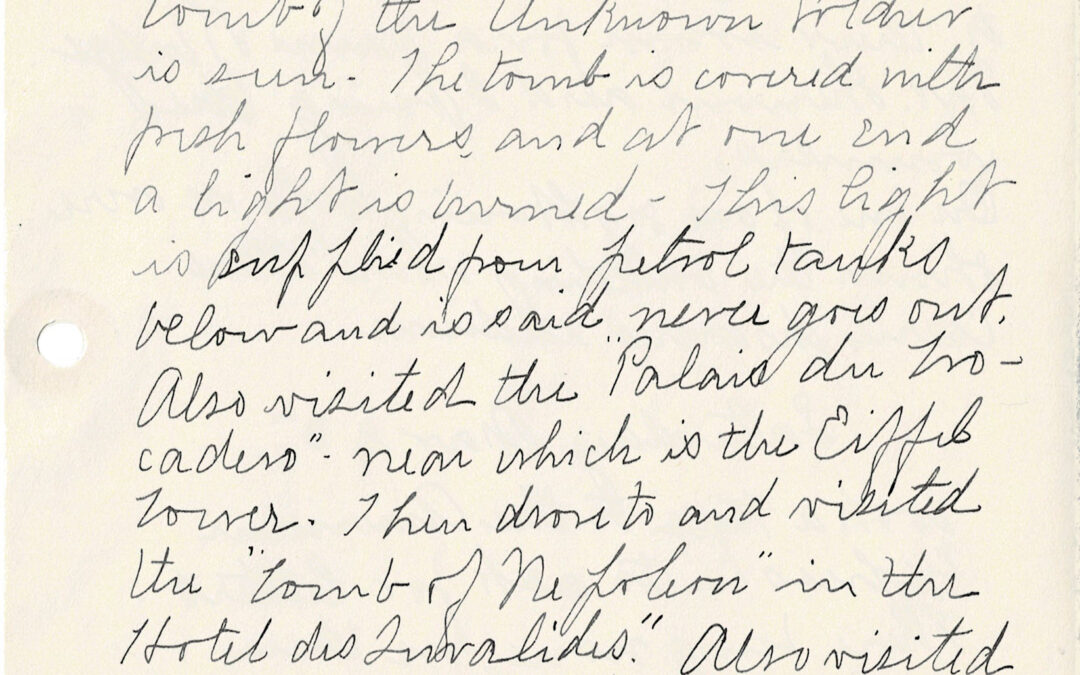 Tomb of the Unknown Soldier
is seen. The tomb is covered with
fresh flowers, and at one end
a light is burned - This light
is supplied from petrol tanks
below and is said never goes out.
Also visited the "Palais du Tro-
cadero"- near which is the Eiffel
Tower. Then drove to and visited
the "Tomb of Nepoleon" in the
Hotel des Invalides." Also visited